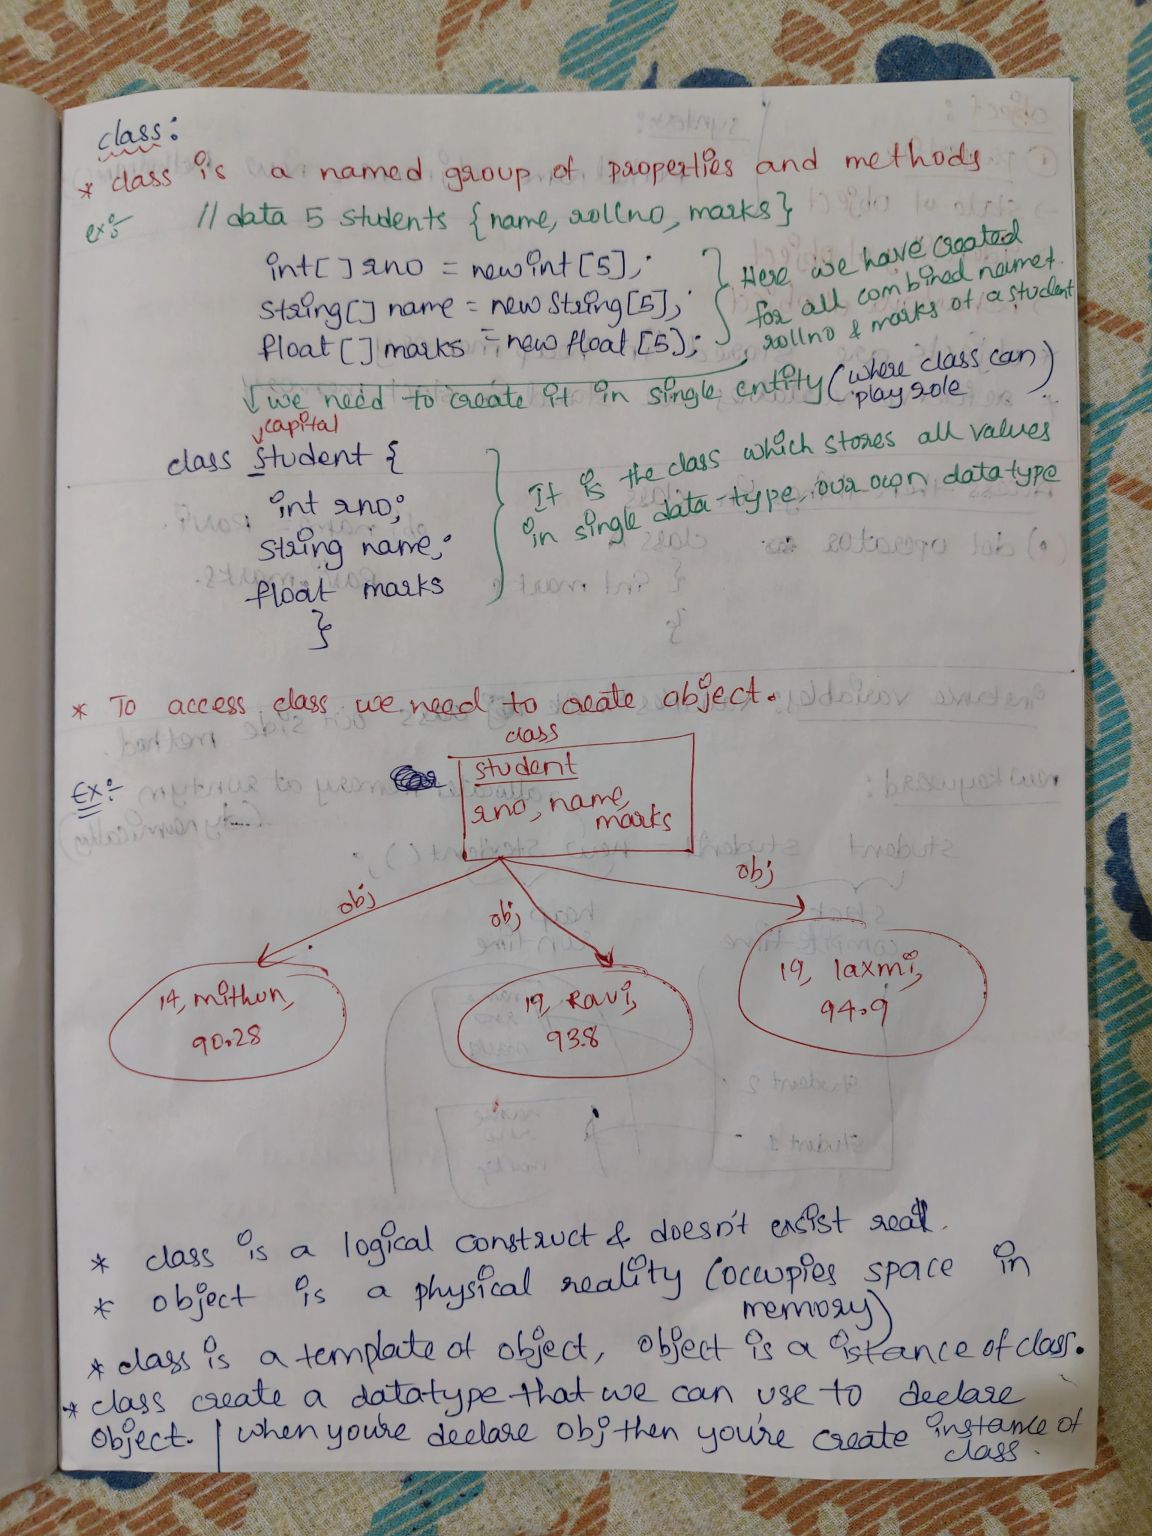 class:
* class is a named group of properties and methods
ex:- // data 5 students {name, rollno, marks}
int[] rno = new int[5];
String[] name = new String[5];
float[] marks = new float[5];
Here we have created
for all combined
rollno & marks of a student
we need to create it in single entity (where class can
play role)
capital
class Student {
int rno;
string name;
float marks
}
It is the class which stores all values
in single data-type, our own data type
* To access class we need to create object.
class
Ex:-
student
rno, name,
marks
obj
obj
obj
14, mithun,
90.28
19, Ravi,
93.8
19, laxmi,
94.9
* class is a logical construct & doesn't ensist real.
* object is a physical reality (occupies space in
memory)
* class is a template of object, object is a istance of class.
* class create a datatype that we can use to declare
object. | when you're declare obj then you're create instance of
class.